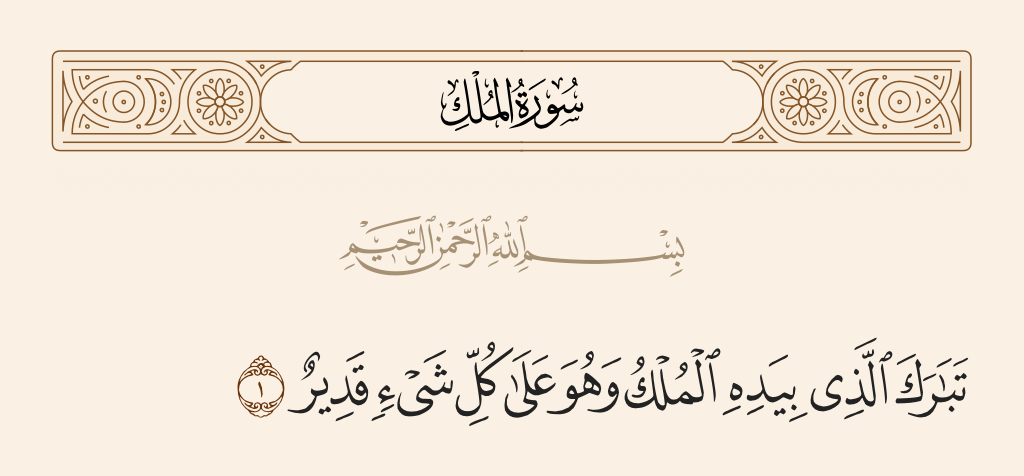 سُورَةُ الْمُلْكِ
بِسْمِ ٱللَّهِ ٱلرَّحْمَٰنِ ٱلرَّحِيمِ
تَبَٰرَكَ ٱلَّذِى بِيَدِهِ ٱلْمُلْكُ وَهُوَ عَلَىٰ كُلِّ شَىْءٍ قَدِيرٌ ١